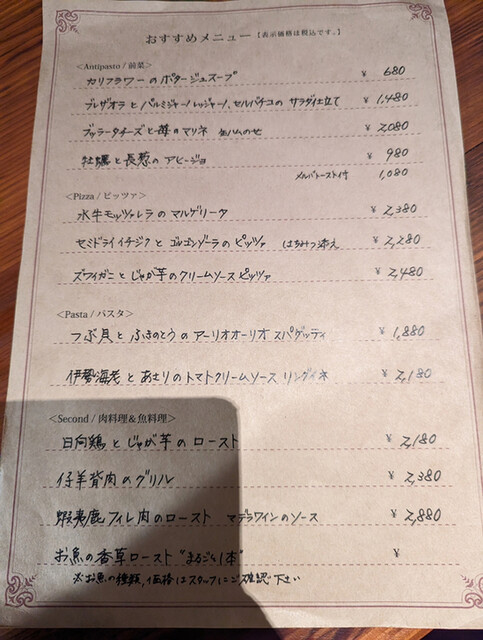 おすすめメニュー【表示価格は税込です。】
<Antipasto / 前菜>
カリフラワーのポタージュスープ ¥ 680
ブレザオラとパルミジャーノレッジャーノ、セルバチコのサラダ仕立て ¥ 1,480
ブッラータチーズと苺のマリネ 生ハムのせ ¥ 2,080
牡蠣と長葱のアヒージョ ¥ 980
メルバトースト付 1,080
<Pizza / ピッツァ>
水牛モッツァレラのマルゲリータ ¥ 2,380
セミドライイチジクとゴルゴンゾーラのピッツァ はちみつ添え ¥ 2,280
ズワイガニとじゃが芋のクリームソースピッツァ ¥ 2,480
<Pasta / パスタ>
つぶ貝とふきのとうのアーリオオーリオ スパゲッティ ¥ 1,880
伊勢海老とあさりのトマトクリームソース リングイネ ¥ 2,180
<Second / 肉料理&魚料理>
日向鶏とじゃが芋のロースト ¥ 2,180
仔羊背肉のグリル ¥ 2,380
蝦夷鹿フィレ肉のロースト マデラワインのソース ¥ 2,880
お魚の香草ロースト"まるごと1本" ¥
※お魚の種類,価格はスタッフにご確認下さい